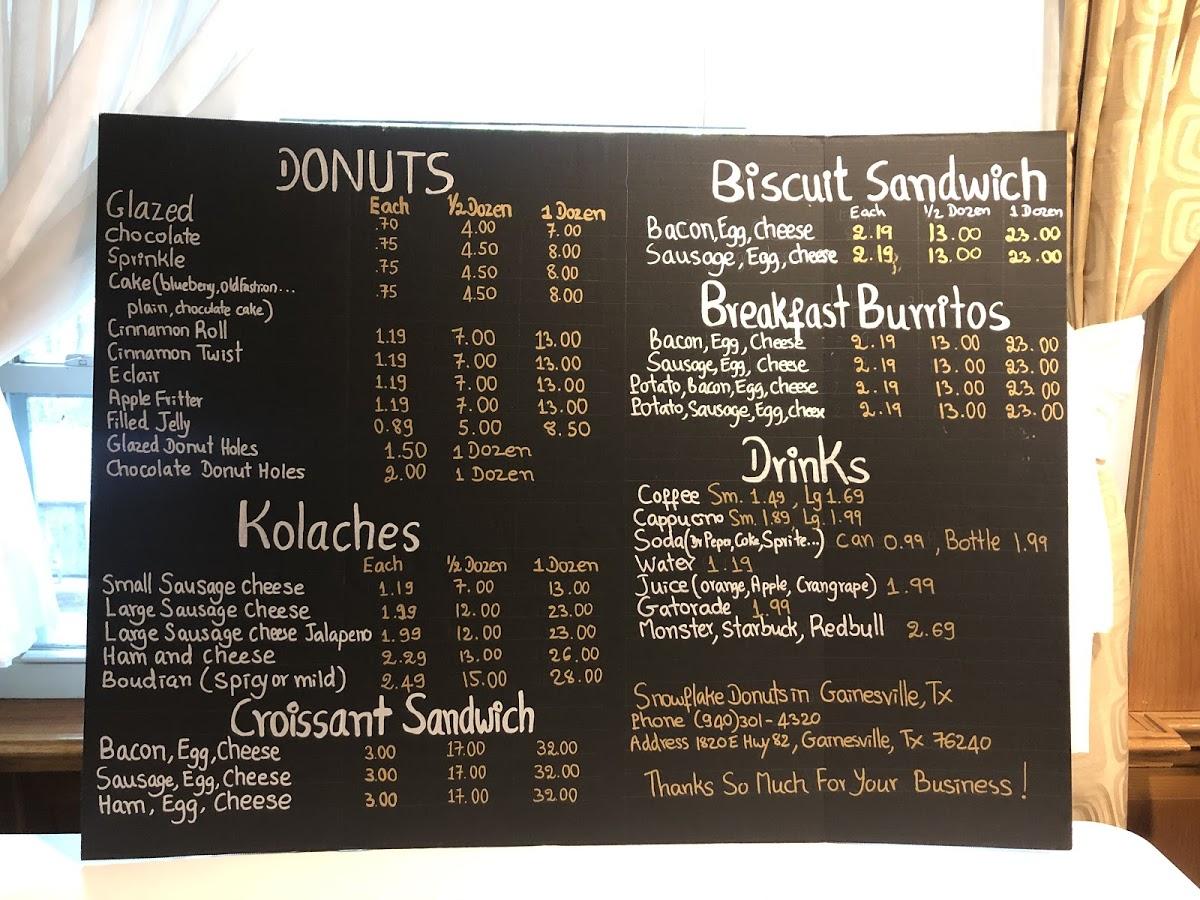 DONUTS
Each ½ Dozen 1 Dozen
Glazed .70 4.00 7.00
Chocolate .75 4.50 8.00
Sprinkle .75 4.50 8.00
Cake (blueberry, oldfashion... .75 4.50 8.00
plain, chocolate cake)
Cinnamon Roll 1.19 7.00 13.00
Cinnamon Twist 1.19 7.00 13.00
Eclair 1.19 7.00 13.00
Apple Fritter 1.19 7.00 13.00
Filled Jelly 0.89 5.00 8.50
Glazed Donut Holes 1.50 1 Dozen
Chocolate Donut Holes 2.00 1 Dozen
Kolaches
Each ½ Dozen 1 Dozen
Small Sausage cheese 1.19 7.00 13.00
Large Sausage Cheese 1.99 12.00 23.00
Large Sausage cheese Jalapeno 1.99 12.00 23.00
Ham and cheese 2.29 13.00 26.00
Boudian (Spicy or mild) 2.49 15.00 28.00
Croissant Sandwich
Bacon, Egg, Cheese 3.00 17.00 32.00
Sausage, Egg, Cheese 3.00 17.00 32.00
Ham, Egg, Cheese 3.00 17.00 32.00
Biscuit Sandwich
Each ½ Dozen 1 Dozen
Bacon, Egg, Cheese 2.19 13.00 23.00
Sausage, Egg, Cheese 2.19 13.00 23.00
Breakfast Burritos
Bacon, Egg, Cheese 2.19 13.00 23.00
Sausage, Egg, Cheese 2.19 13.00 23.00
Potato, Bacon, Egg, Cheese 2.19 13.00 23.00
Potato, Sausage, Egg, cheese 2.19 13.00 23.00
Drinks
Coffee Sm. 1.49, Lg 1.69
Cappucino Sm. 1.89, Lg. 1.99
Soda (Dr Peper, Coke, Sprite...) Can 0.99, Bottle 1.99
Water 1.19
Juice (orange, Apple, Crangrape) 1.99
Gatorade 1.99
Monster, Starbuck, Redbull 2.69
Snowflake Donuts in Gainesville, Tx
Phone (940)301-4320
Address 1820 E Hwy 82, Gainesville, Tx 76240
Thanks So Much For Your Business!